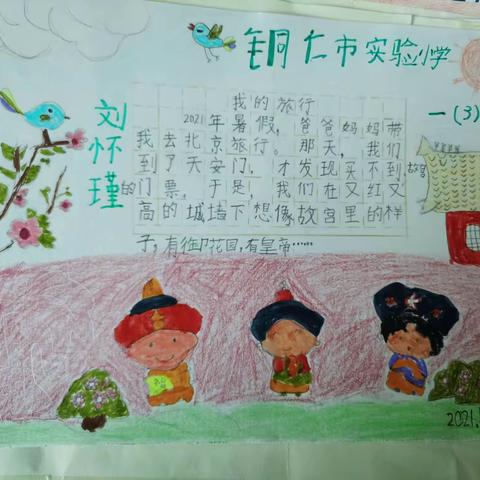 铜仁市实验小学
一(3)
刘怀瑾
我的旅行
2021年暑假，爸爸妈妈带
我去北京旅行。那天，我们
到了天安门，才发现买不到故宫
的门票。于是，我们在又红又
高的城墙下想像故宫里的样
子，有御花园，有皇帝……
2021.